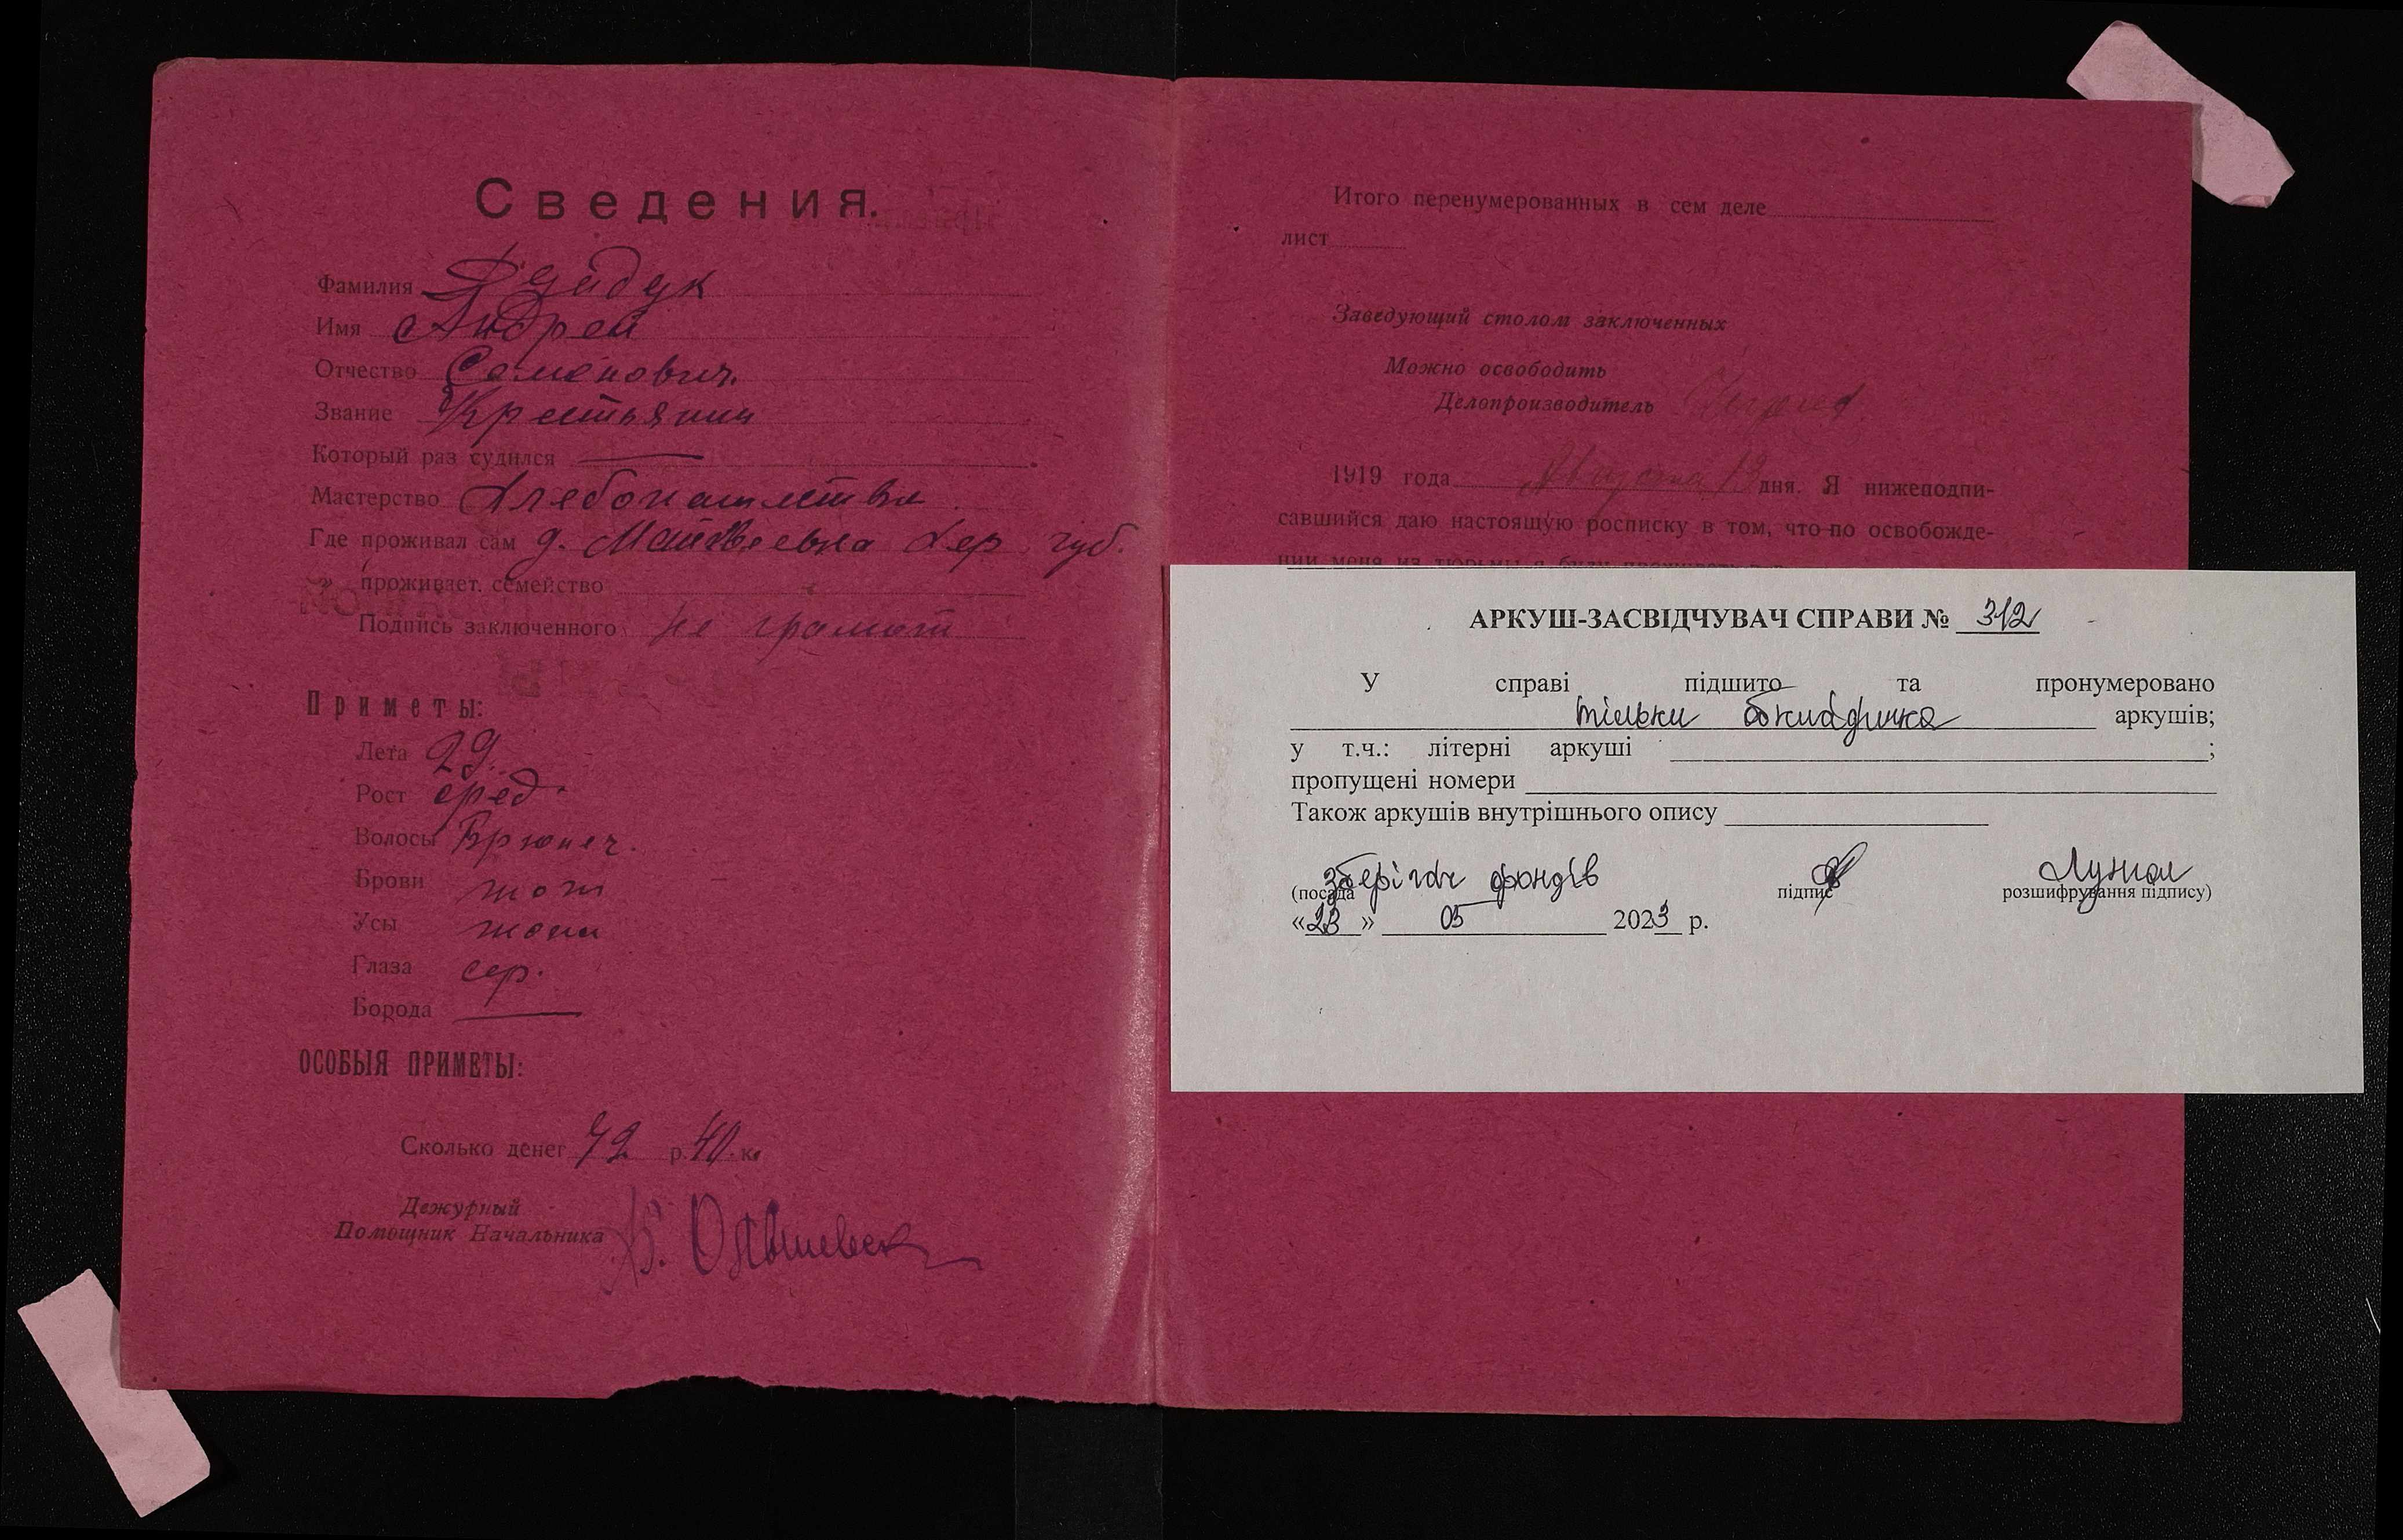 Сведения.
Фамилия
Имя Андрей
Отчество Семенович.
Звание Крестьянин
Который раз судился
Мастерство Хлебопашество
Где проживал сам д. Матвеевка Хер. губ.
„ проживает семейство
Подпись заключенного не грамот
Приметы:
Лета 29.
Рост сред.
Волосы Брюнет.
Брови тож
Усы тоже
Глаза сер.
Борода
ОСОБЫЯ ПРИМЕТЫ:
Сколько денег 72 р. 40 к.
Дежурный
Помощник Начальника
Итого перенумерованных в сем деле
лист
Заведующий столом заключенных
Можно освободить
Делопроизводитель
1919 года Августа 13 дня. Я нижеподпи-
савшийся даю настоящую росписку в том, что по освобожде-
нии меня из тюрьмы я буду
АРКУШ-ЗАСВІДЧУВАЧ СПРАВИ № 312
У справі підшито та пронумеровано
тільки обкладинка аркушів;
у т.ч.: літерні аркуші ;
пропущені номери
Також аркушів внутрішнього опису
зберігач фондів
(посада підпис розшифрування підпису)
«23» 05 2023 р.